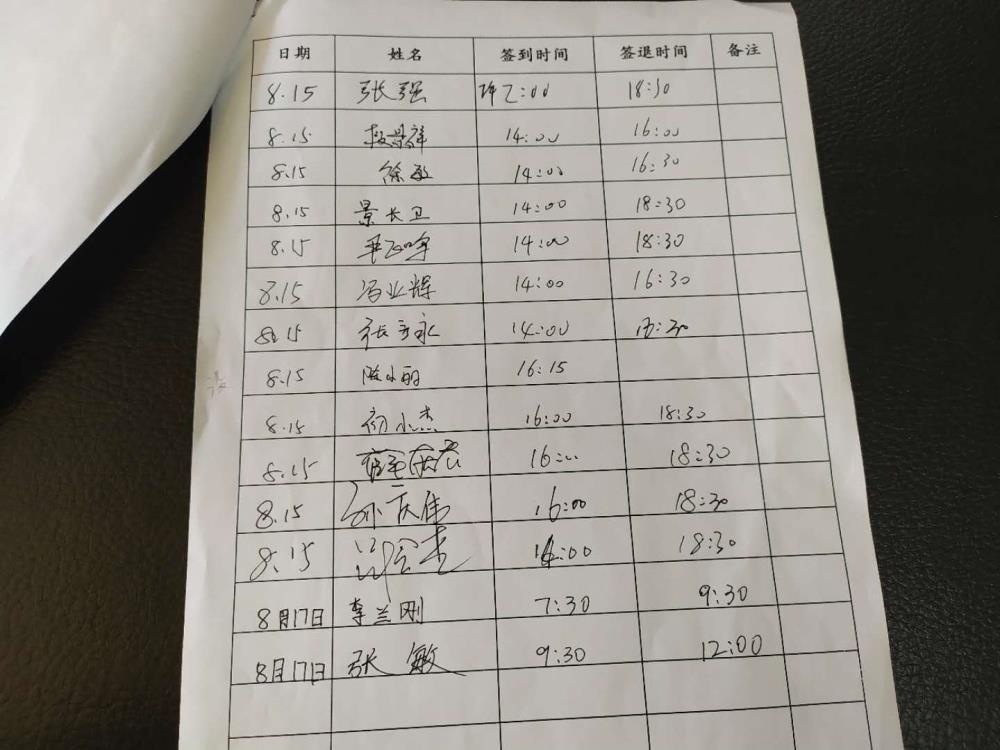 日期 姓名 签到时间 签退时间 备注
8.15 张强 :00 18:30
8.15 14:00 16:00
8.15 徐敏 14:00 16:30
8.15 景长卫 14:00 18:30
8.15 14:00 18:30
8.15 冯业辉 14:00 16:30
8.15 张 永 14:00 :30
8.15 陈小丽 16:15
8.15 初小杰 16:00 18:30
8.15 16:00 18:30
8.15 孙庆伟 16:00 18:30
8.15 :00 18:30
8月17日 李兰刚 7:30 9:30
8月17日 张敏 9:30 12:00